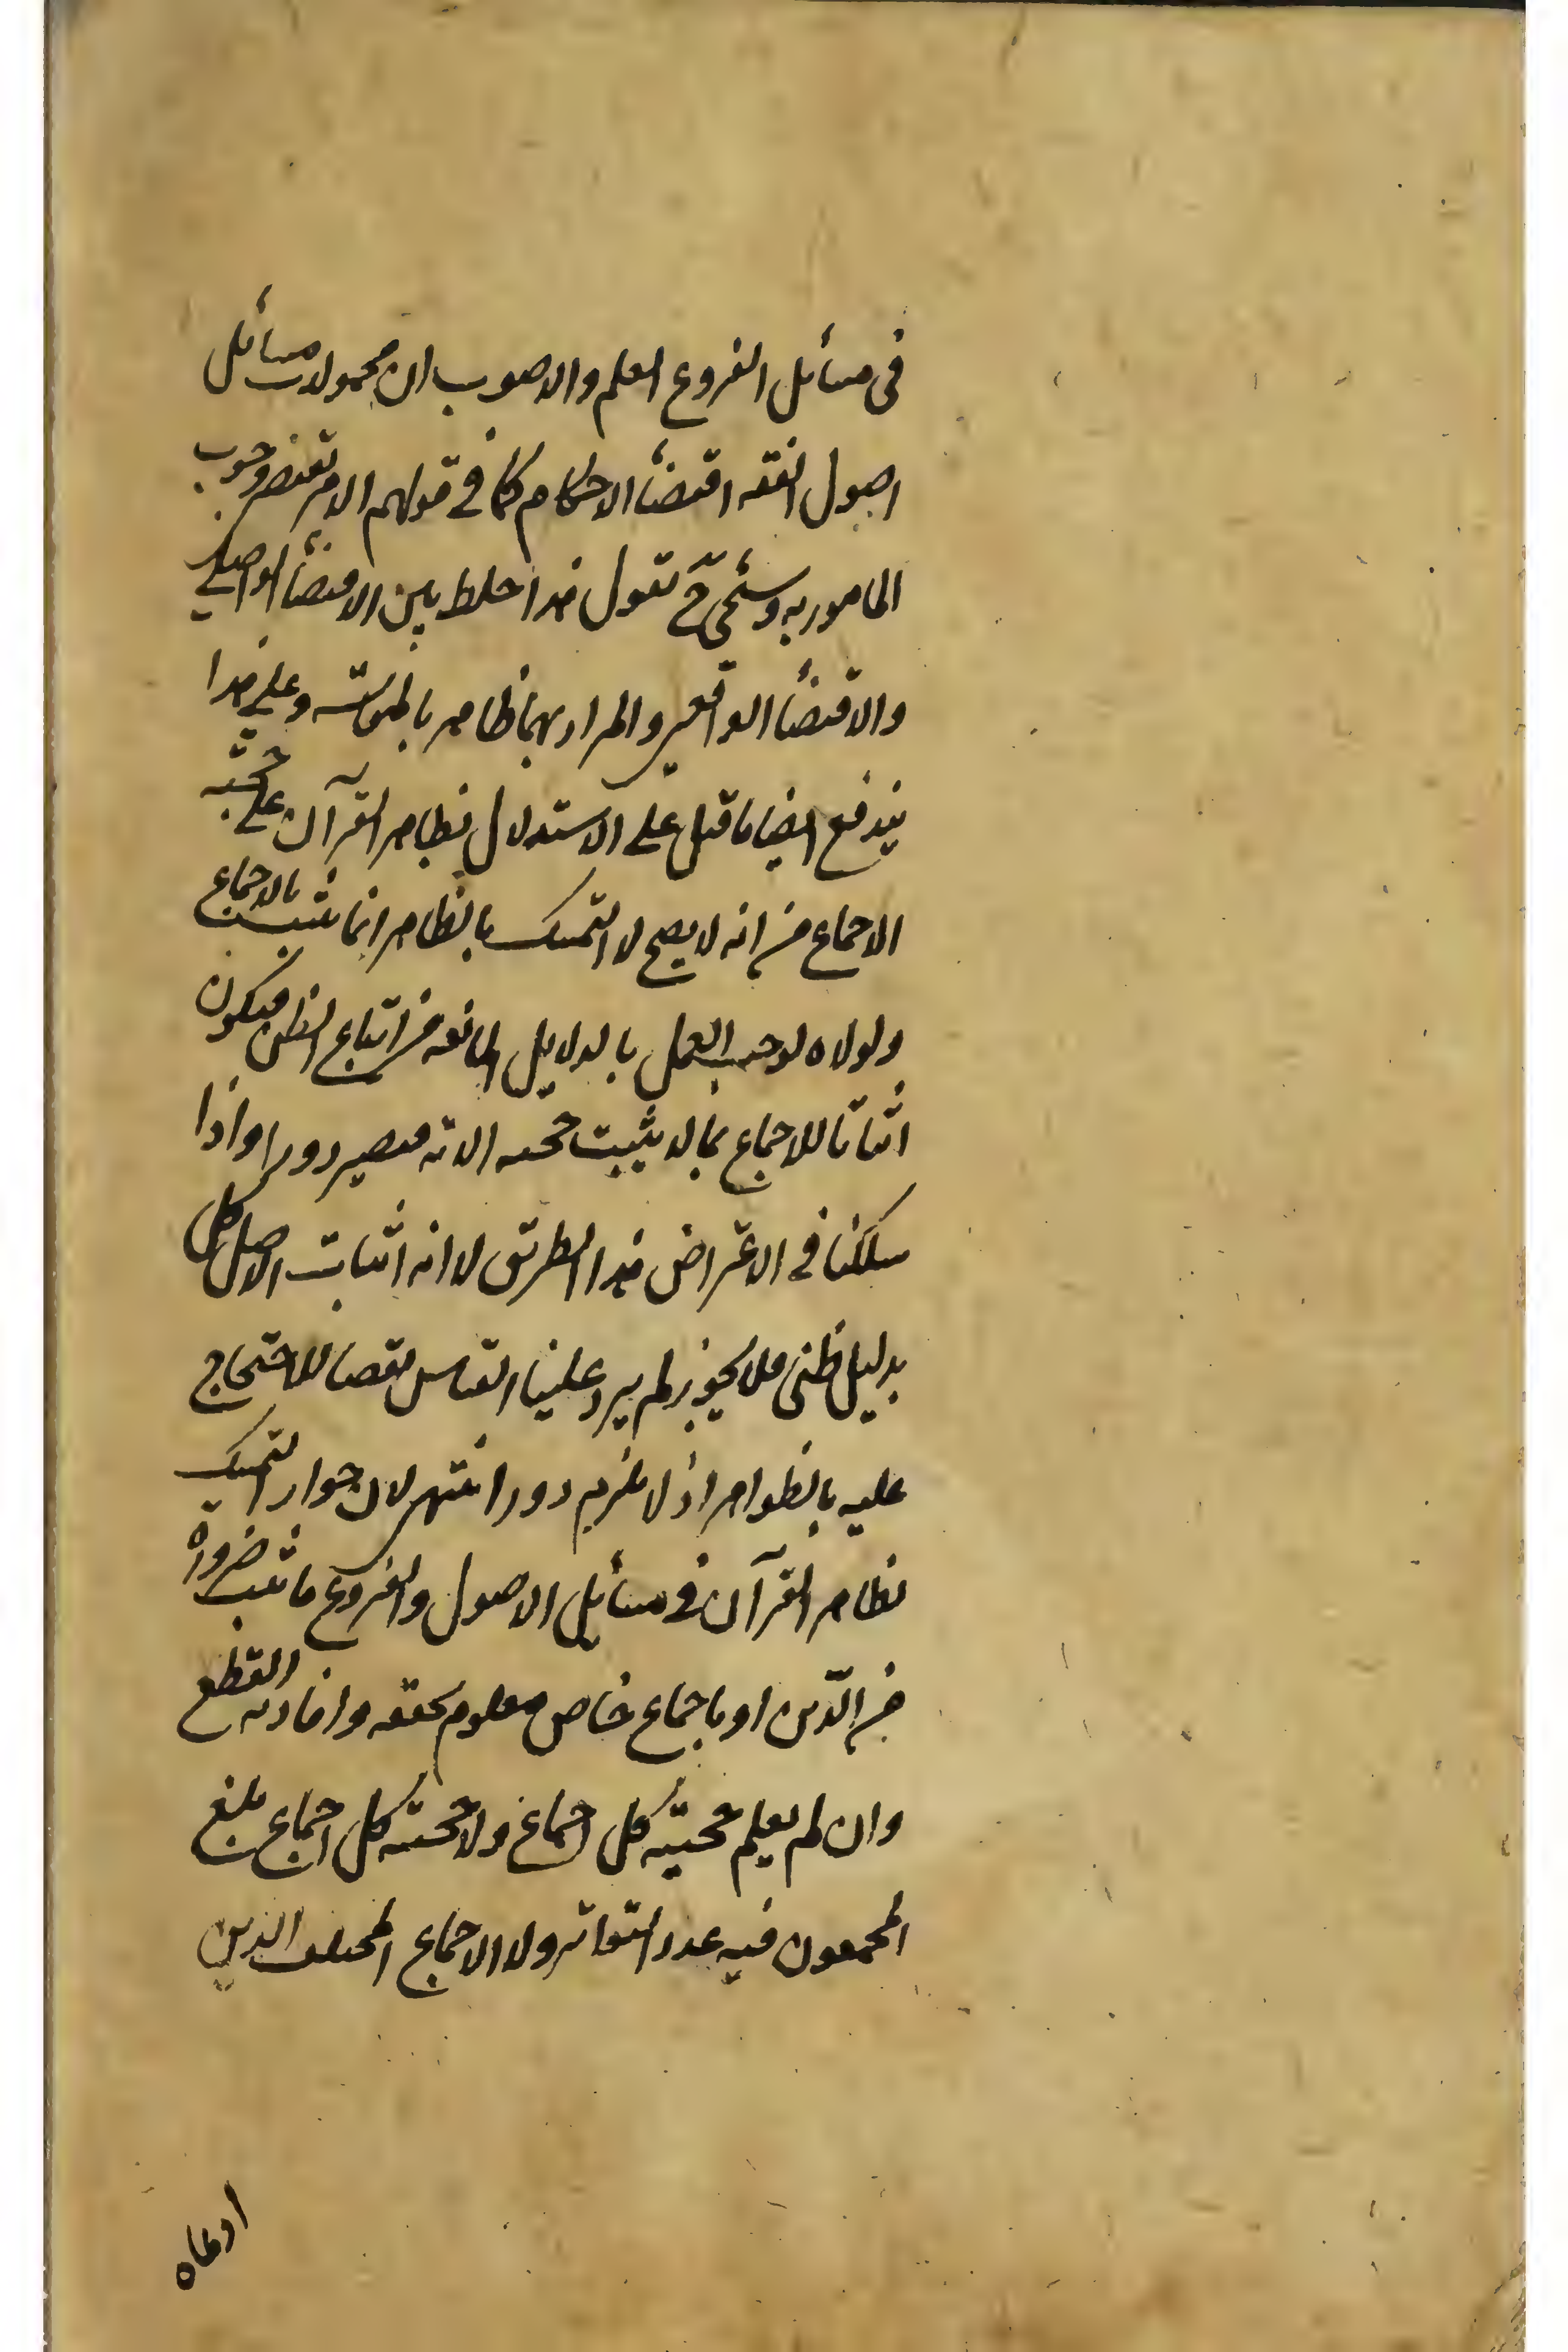 فى مسائل الفروع العلم والاصوب ان محمولات مسائل
اصول الفقه اقتضاء الاحكام كما فى قولهم الامر يقتضى وجوب
المامور به وسنحقق نقول هذا خلط بين الاقتضاء
والاقتضاء الواقعى والمراد بهما ظاهر وعلى هذا
يندفع ايضا ما قيل على الاستدلال بظاهر القرآن على حجية
الاجماع من انه لا يصح لان التمسك بالظاهر انما يثبت بالاجماع
ولولاه لوجب العمل بالدلايل المانعه من اتباع الظن فيكون
اثباتا للاجماع بما لا يثبت حجيته الا به فيصير دورا واذا
سلكنا فى الاعتراض هذا الطريق لا انه اثبات الاصل كلى
بدليل ظنى فلا يجوز لم يرد علينا القياس نقضا للاحتجاج
عليه بالظواهر اذ لا يلزم دور انتهى لان جواز التمسك
بظاهر القرآن فى مسائل الاصول والفروع ما ثبت ضرورة
من الدين او باجماع خاص معلوم تحققه وافادته القطع
وان لم يعلم حجية كل اجماع ولا حجية كل اجماع يبلغ
المجمعون فيه عدد التواتر ولا الاجماع المختلف الذين
ادعاه